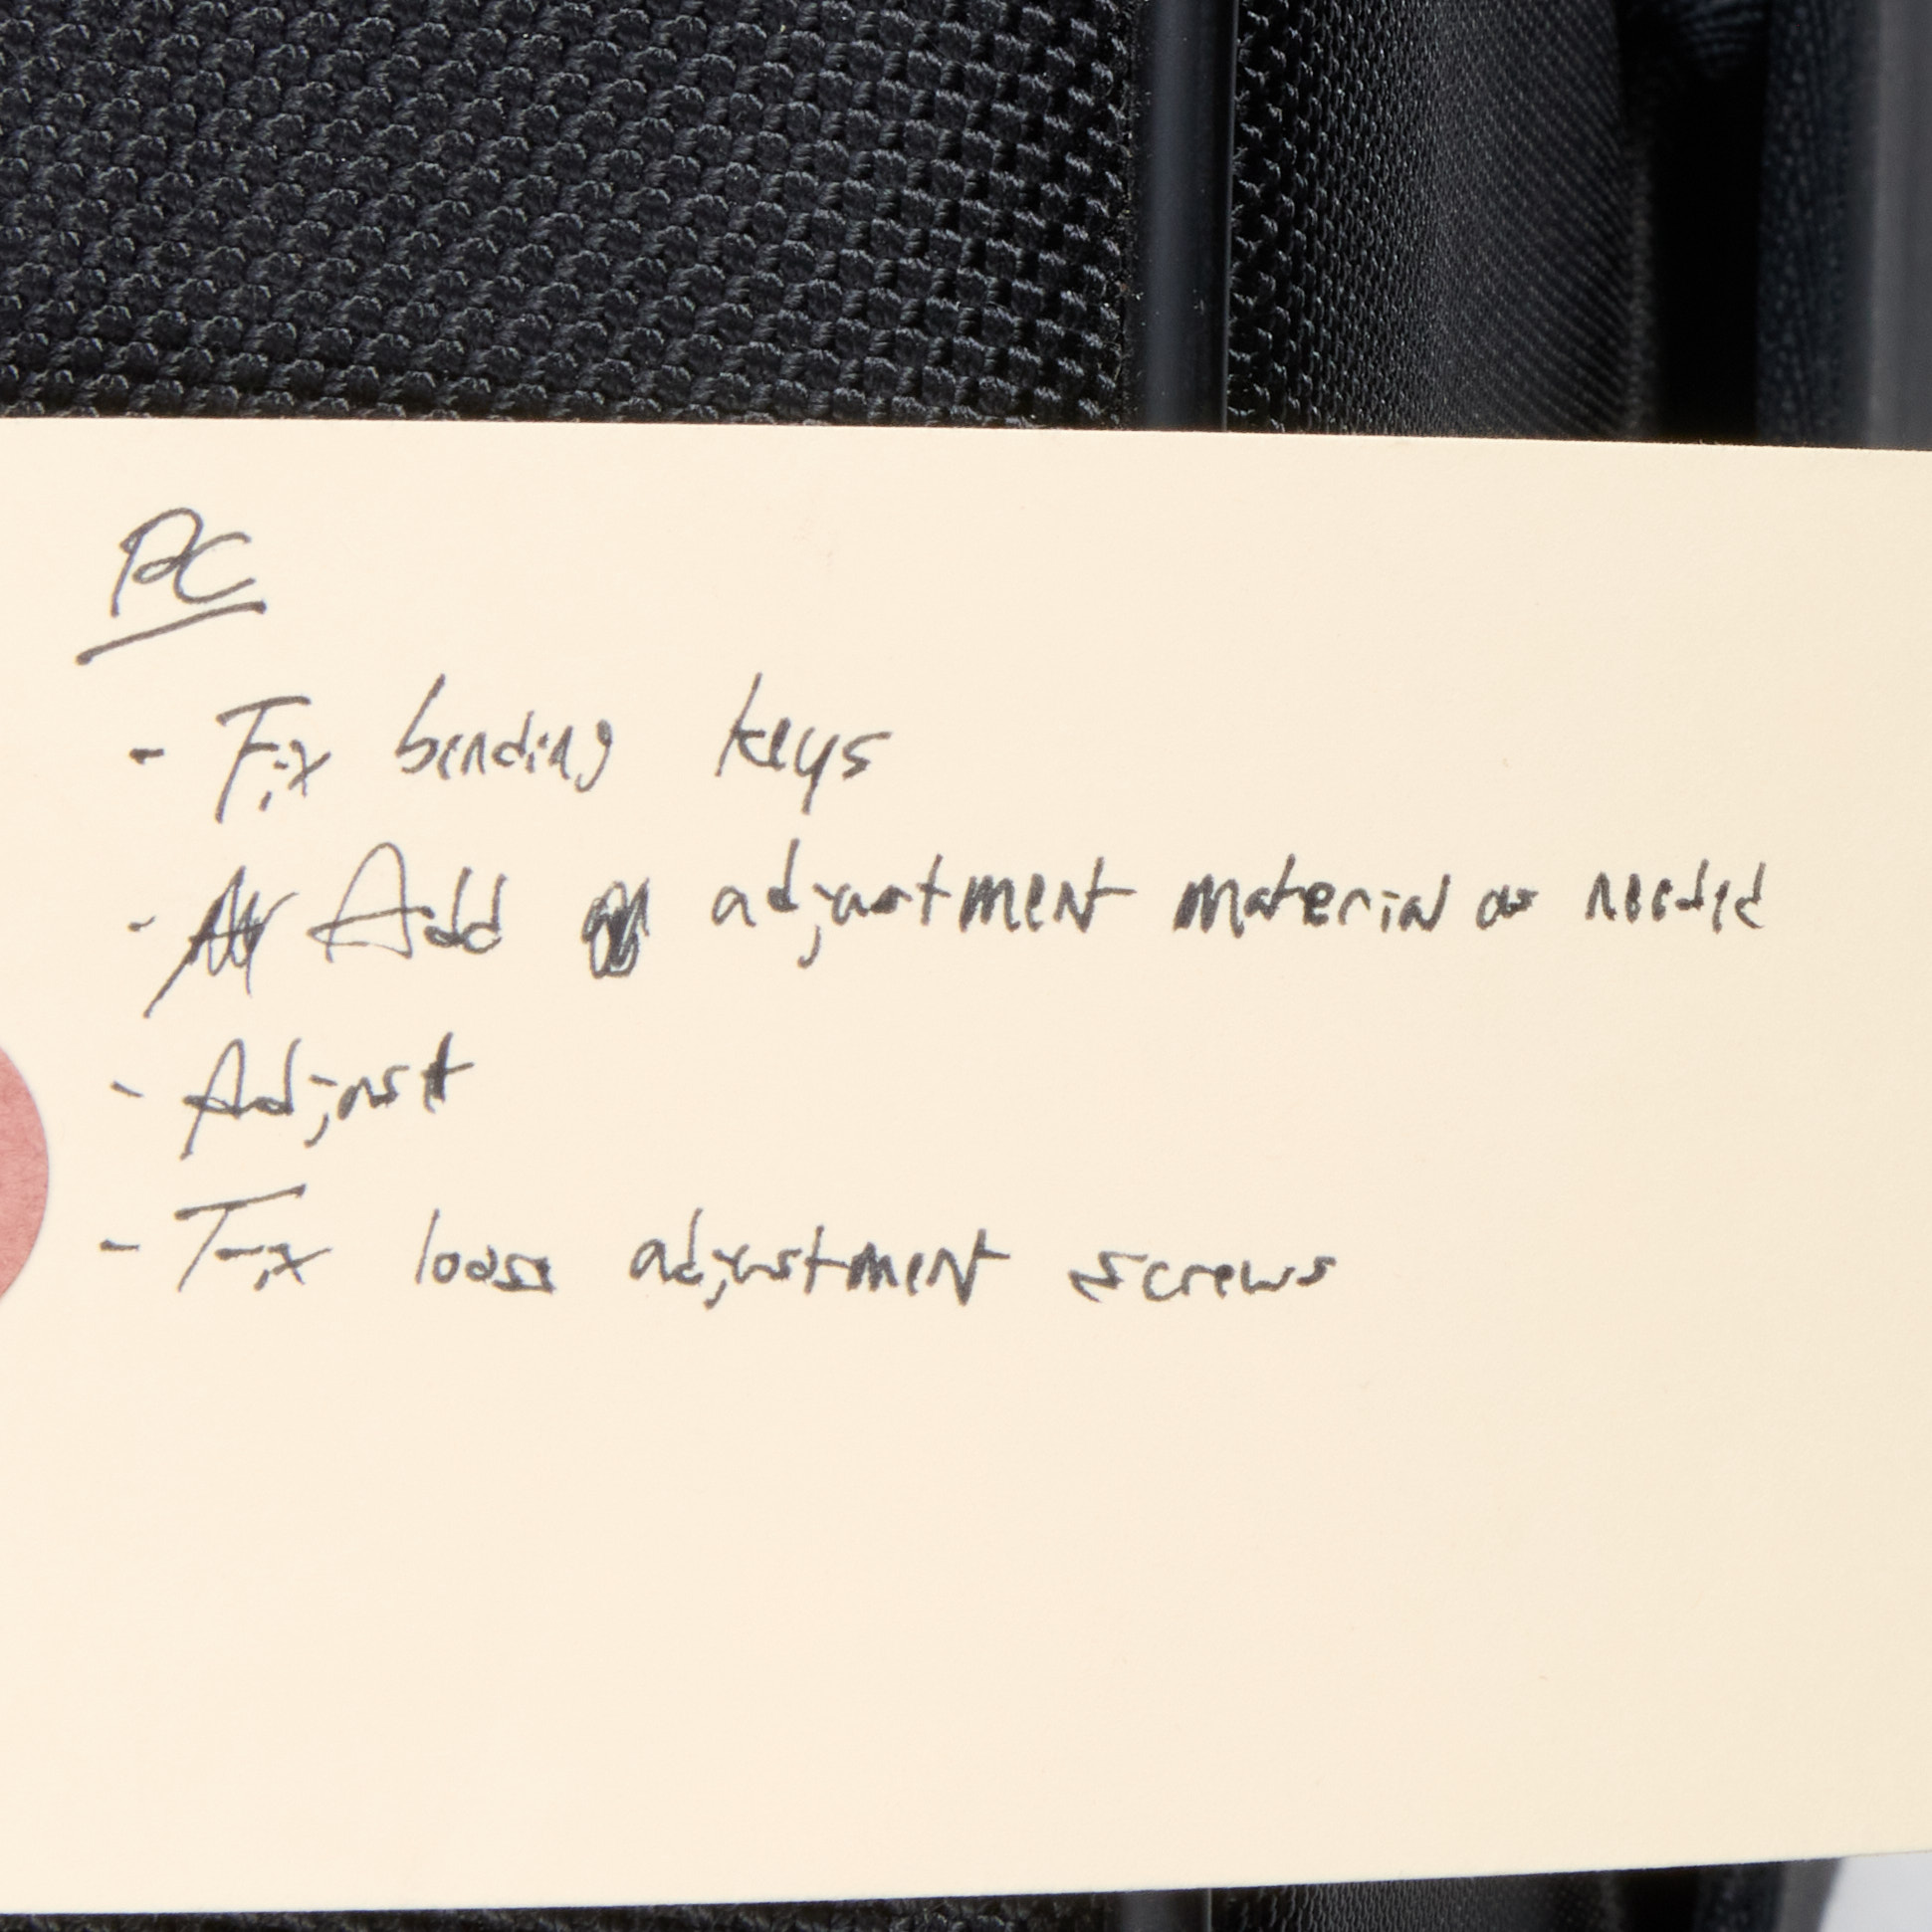 PC
- Fix binding keys
- Add adjustment material as needed
- Adjust
- Fix loose adjustment screws